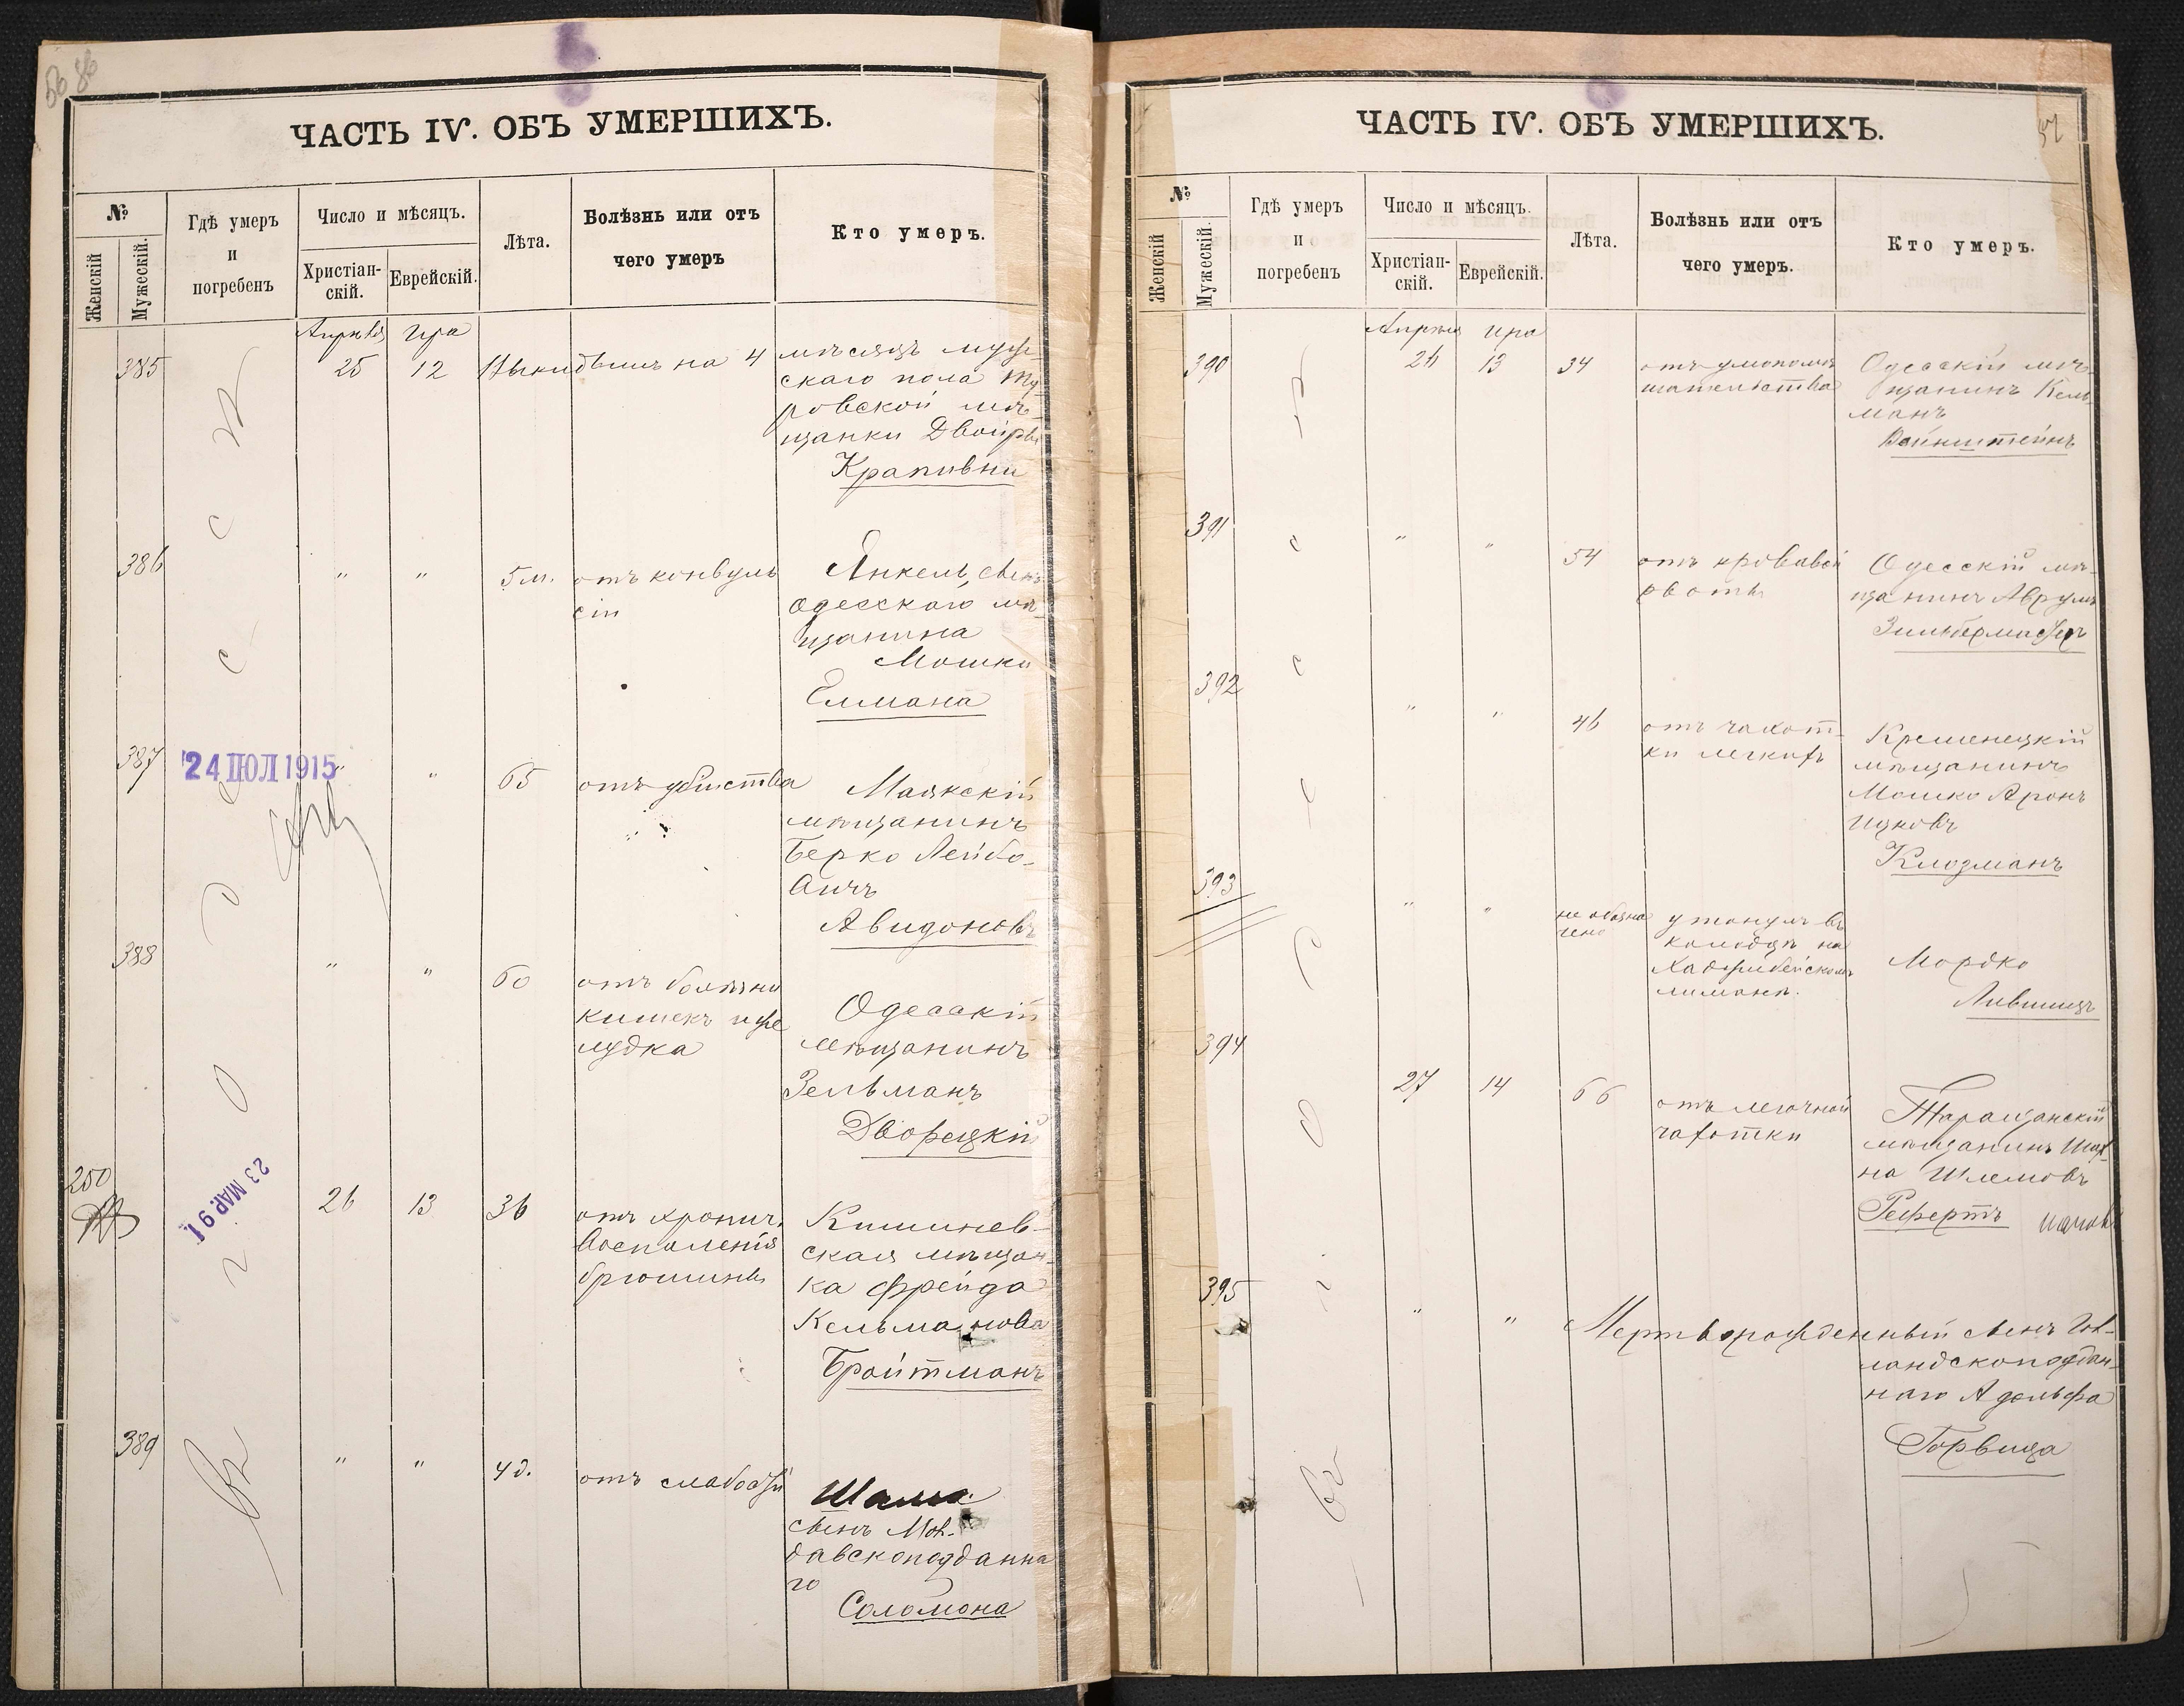 56 86
ЧАСТЬ IV. ОБЪ УМЕРШИХЪ.
№
Женскій
Мужескій.
Гдѣ умеръ
и
погребенъ
Число и мѣсяцъ.
Христіан-
скій.
Еврейскій.
Лѣта.
Болѣзнь или отъ
чего умеръ
Кто умеръ.
въ г. Одессѣ
Апрѣля Ира
385 25 12 Выкидышъ на 4 мѣсяцѣ муж-
скаго пола Ту-
ровской мѣ-
щанки Двойры
Крапивни
386 " " 5 м. отъ конвуль
сіи
Янкель, сынъ
Одесскаго мѣ-
щанина
Мошки
Елмана
387 " " 65 отъ убійства
24 ІЮЛ 1915
Маякскій
мѣщанинъ
Берко Лейбо-
вичъ
Авидоновъ
388 " " 60 отъ болѣзни
кишекъ и же
лудка
Одесскій
мѣщанинъ
Зельманъ
Дворецкій
250 26 13 36 отъ хронич.
воспаленія
брюшины
23 МАР. 91
Кишинев-
ская мѣщан-
ка Фрейда
Кельманова
Бройтманъ
389 " " 4 д. отъ слабости
Шама
сынъ Мол-
давскоподданна
го
Соломона
ЧАСТЬ IV. ОБЪ УМЕРШИХЪ.
57
№
Женскій
Мужескій.
Гдѣ умеръ
и
погребенъ
Число и мѣсяцъ.
Христіан-
скій.
Еврейскій.
Лѣта.
Болѣзнь или отъ
чего умеръ.
Кто умеръ.
въ г. Одессѣ
Апрѣля Ира
390 26 13 34 отъ умопомѣ
шательства
Одесскій мѣ-
щанинъ Кель-
манъ
Вайнштейнъ
391 " " 54 отъ кровавой
рвоты
Одесскій мѣ-
щанинъ Аврумъ
Зильбермастеръ
392 " " 46 отъ чахот-
ки легкихъ
Кременецкій
мѣщанинъ
Мошко Аронъ
Ицковъ
Клозманъ
393 " " не обозна
чено
утонулъ въ
колодцѣ на
Хаджибейскомъ
лиманѣ.
Мордко
Лившицъ
394 27 14 66 отъ легочной
чахотки
Таращанскій
мѣщанинъ Шах-
на Шлемовъ
Рефертъ
395 " " Мертворожденный сынъ Гол-
ландскоподдан-
наго Адольфа
Горвица